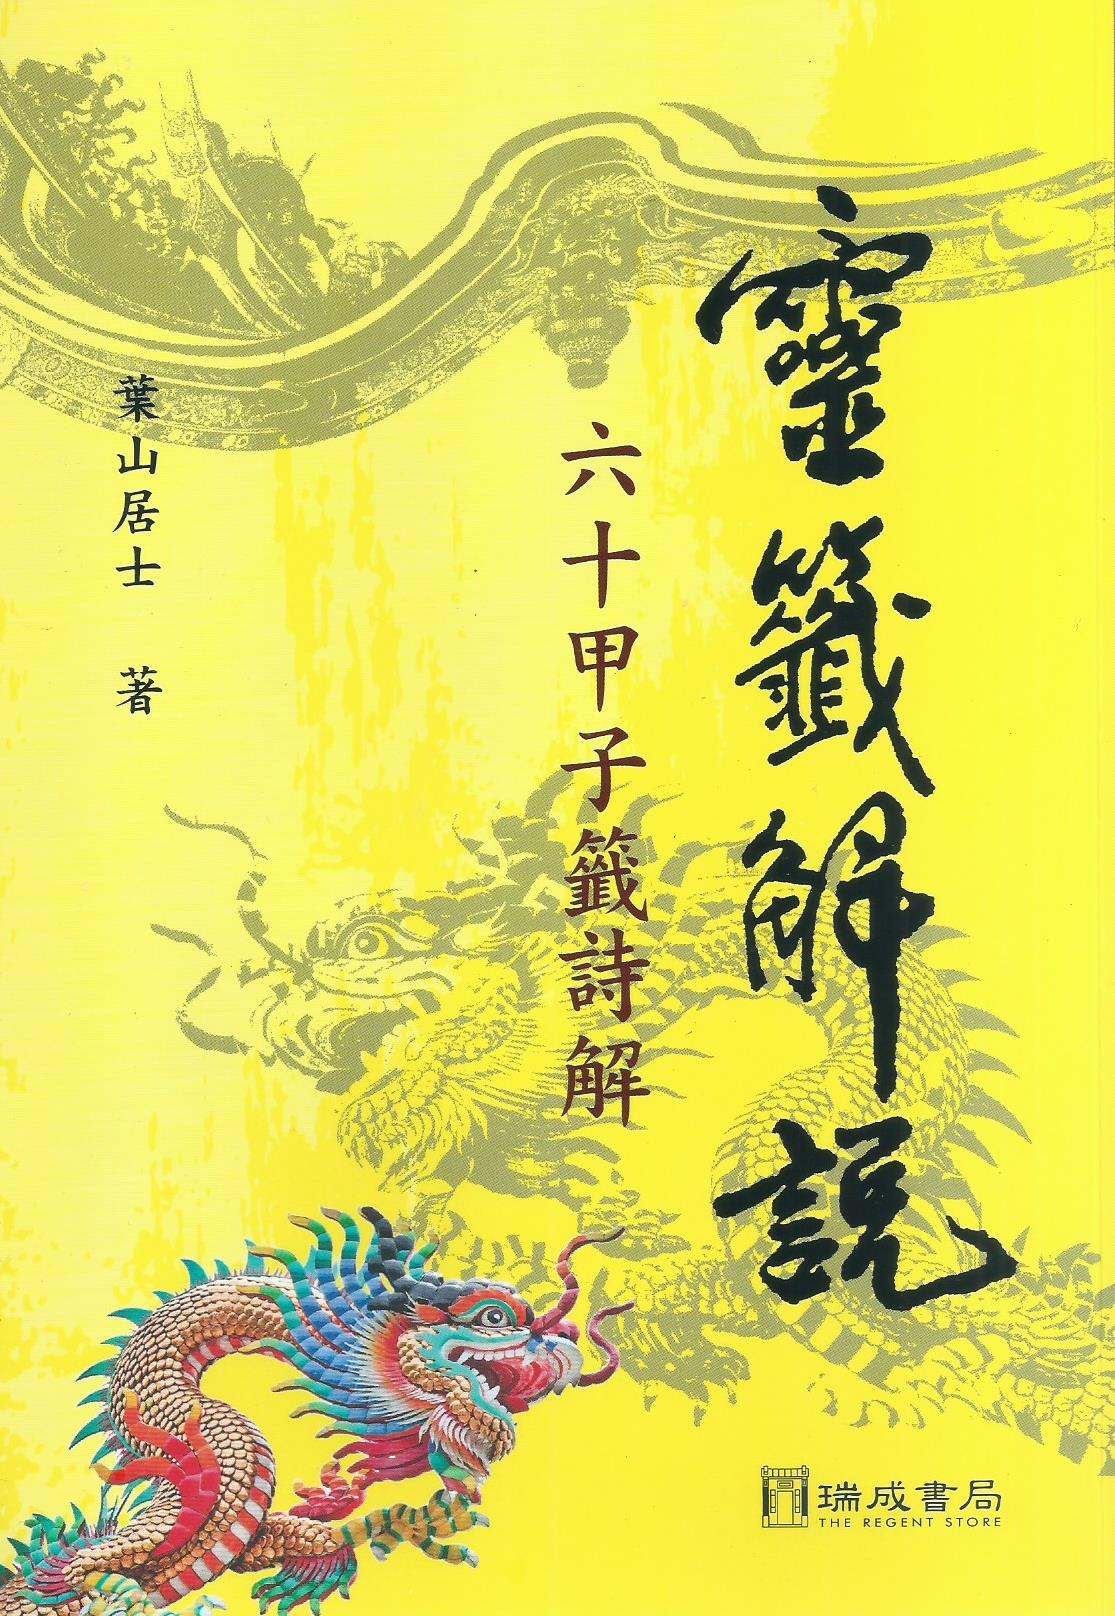 靈籤解説
六十甲子籤詩解
葉山居士 著
瑞成書局
THE REGENT STORE